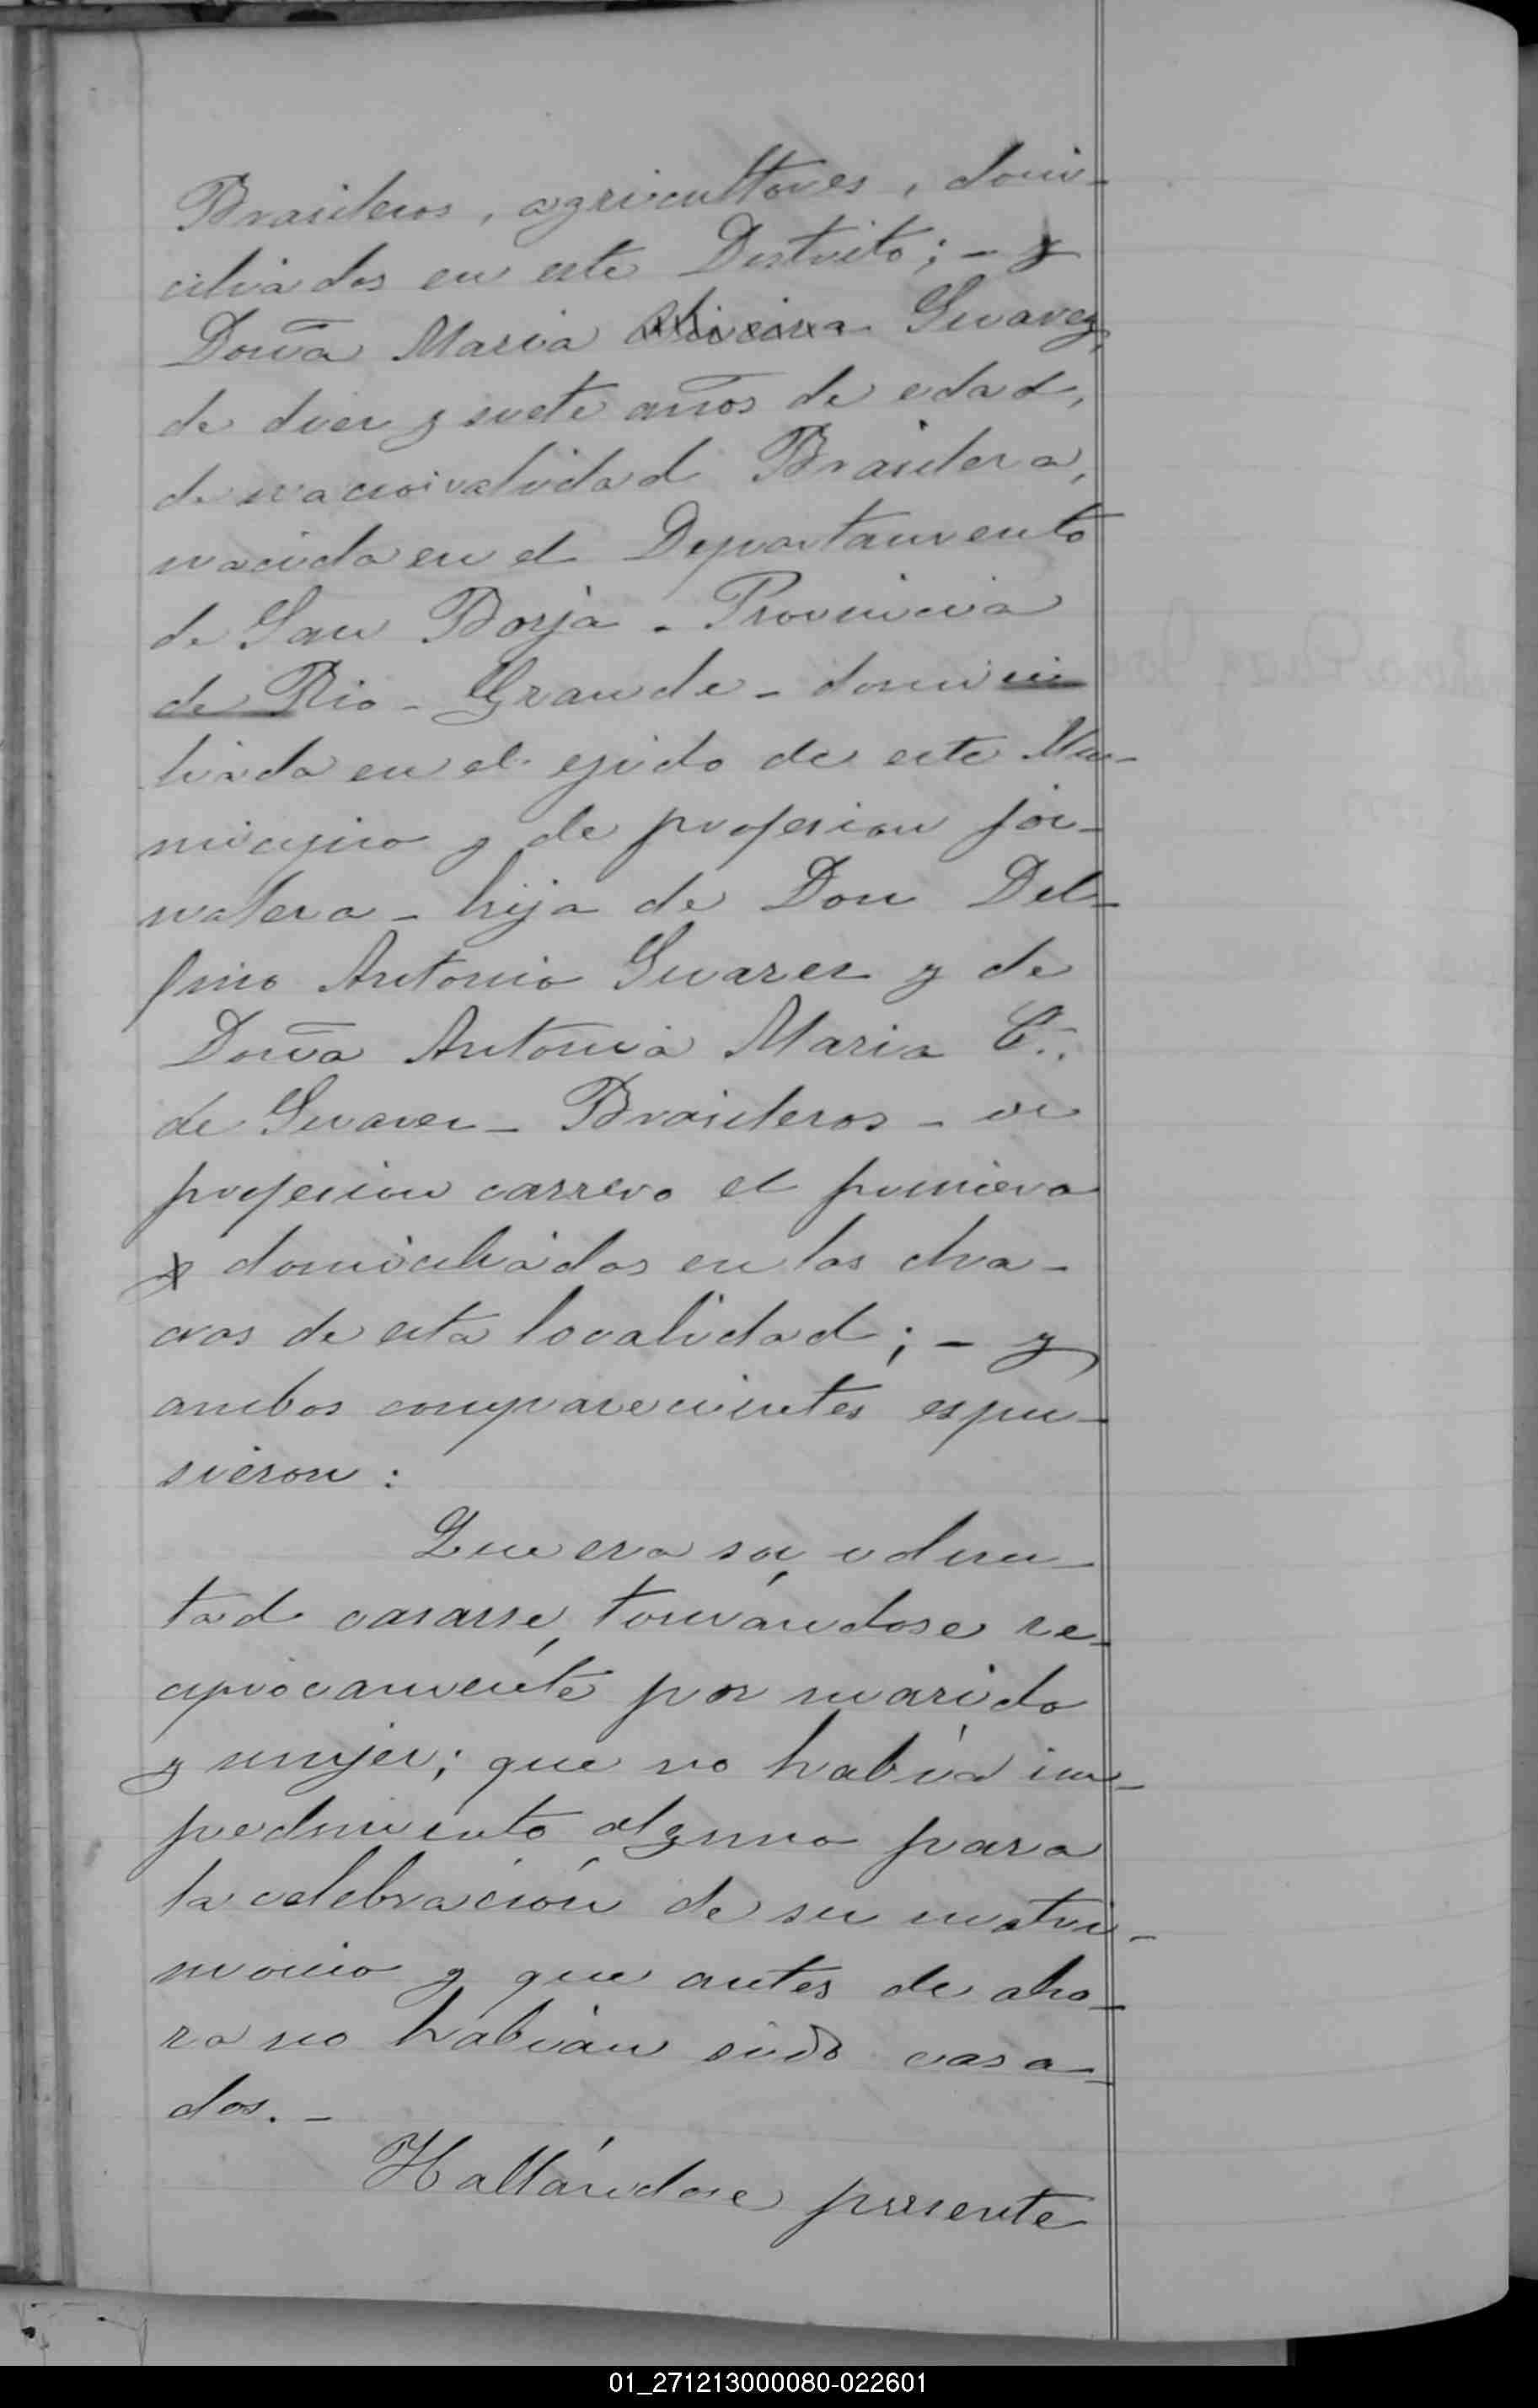 Brasileros, agricultores, domi-
ciliados en este Distrito; - y
Doña Maria Oliveira Suarez,
de diez y siete años de edad,
de nacionalidad Brasilera,
nacida en el Departamento
de San Borja - Provincia
de Rio - Grande - domici
liada en el ejido de este Mu-
nicipio y de profesion jor-
nalera - hija de Don Del-
fino Antonio Suarez y de
Doña Antonia Maria C.
de Suarez - Brasileros - de
profesion carrero el primero
y domiciliados en las cha-
cras de esta localidad; - y
ambos comparecientes espu-
sieron:
Que era su volun-
tad casarse, tomándose re-
ciprocamente por marido
y mujer; que no había im-
pedimento alguno para
la celebración de su matri-
monio y que antes de aho-
ra no habian sido casa-
dos. -
Hallándose presente
01_271213000080-022601